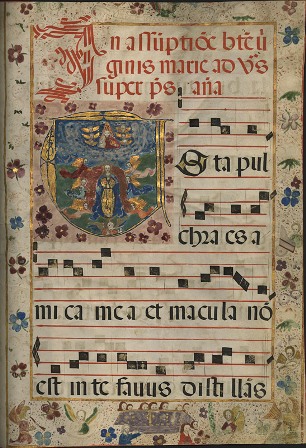 In assūptiōe btē ū
ginis marie ad vs̄
super ps̄ aña
Ota pul
chra es a
mi ca mea et macula nō
est in te favus distillās